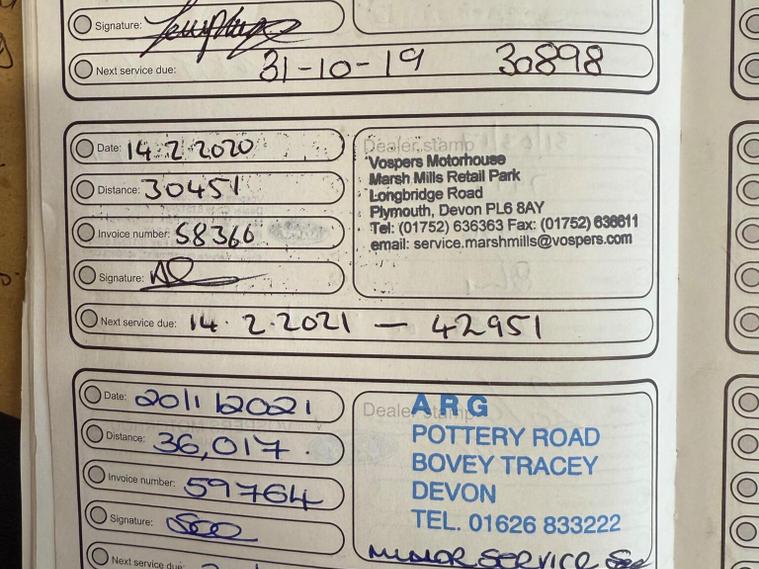 Signature:
Next service due: 31-10-19 30898
Date: 14.2.2020
Distance: 30451
Invoice number: 58366
Signature:
Next service due: 14.2.2021 - 42951
Dealer stamp
Vospers Motorhouse
Marsh Mills Retail Park
Longbridge Road
Plymouth, Devon PL6 8AY
Tel: (01752) 636363 Fax: (01752) 636611
email: service.marshmills@vospers.com
Date:
Distance: 36,017.
Invoice number: 59764
Signature:
Next service due:
Dealer stamp
A R G
POTTERY ROAD
BOVEY TRACEY
DEVON
TEL. 01626 833222
MINOR SERVICE